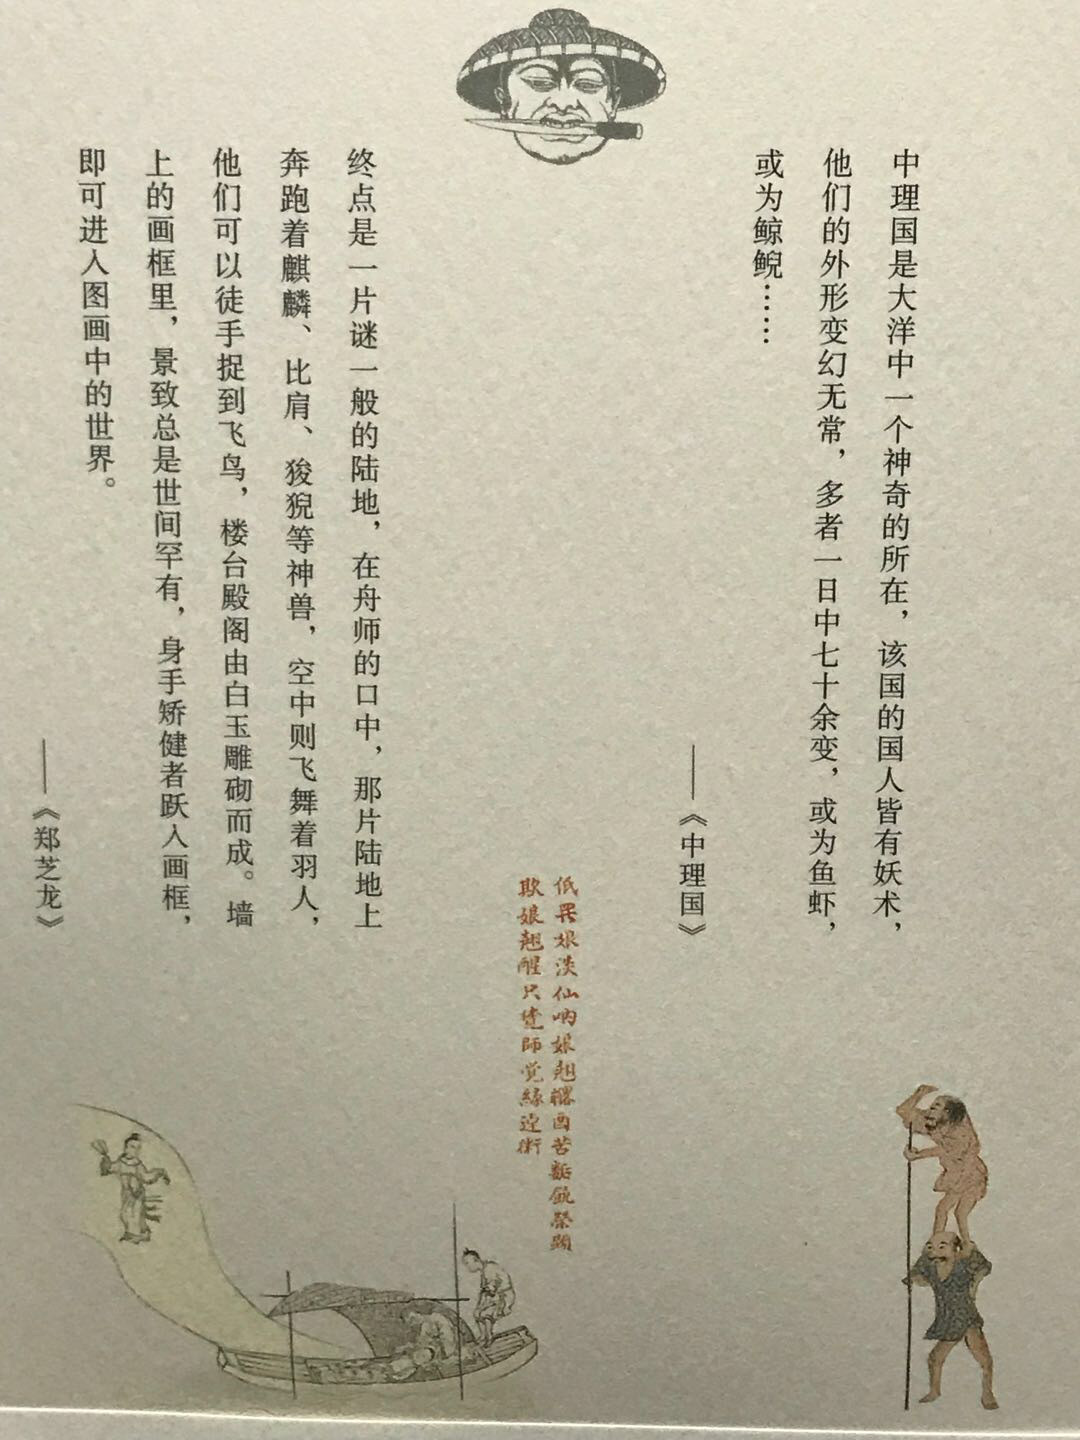 中理国是大洋中一个神奇的所在，该国的国人皆有妖术，
他们的外形变幻无常，多者一日中七十余变，或为鱼虾，
或为鲸鲵……
——《中理国》
低畏娘淡仙呐娘翘
欺娘翘醒只
終点是一片谜一般的陆地，在舟师的口中，那片陆地上
奔跑着麒麟、比肩、狻猊等神兽，空中则飞舞着羽人，
他们可以徒手捉到飞鸟，楼台殿阁由白玉雕砌而成。墙
上的画框里，景致总是世间罕有，身手矫健者跃入画框，
即可进入图画中的世界。
——《郑芝龙》